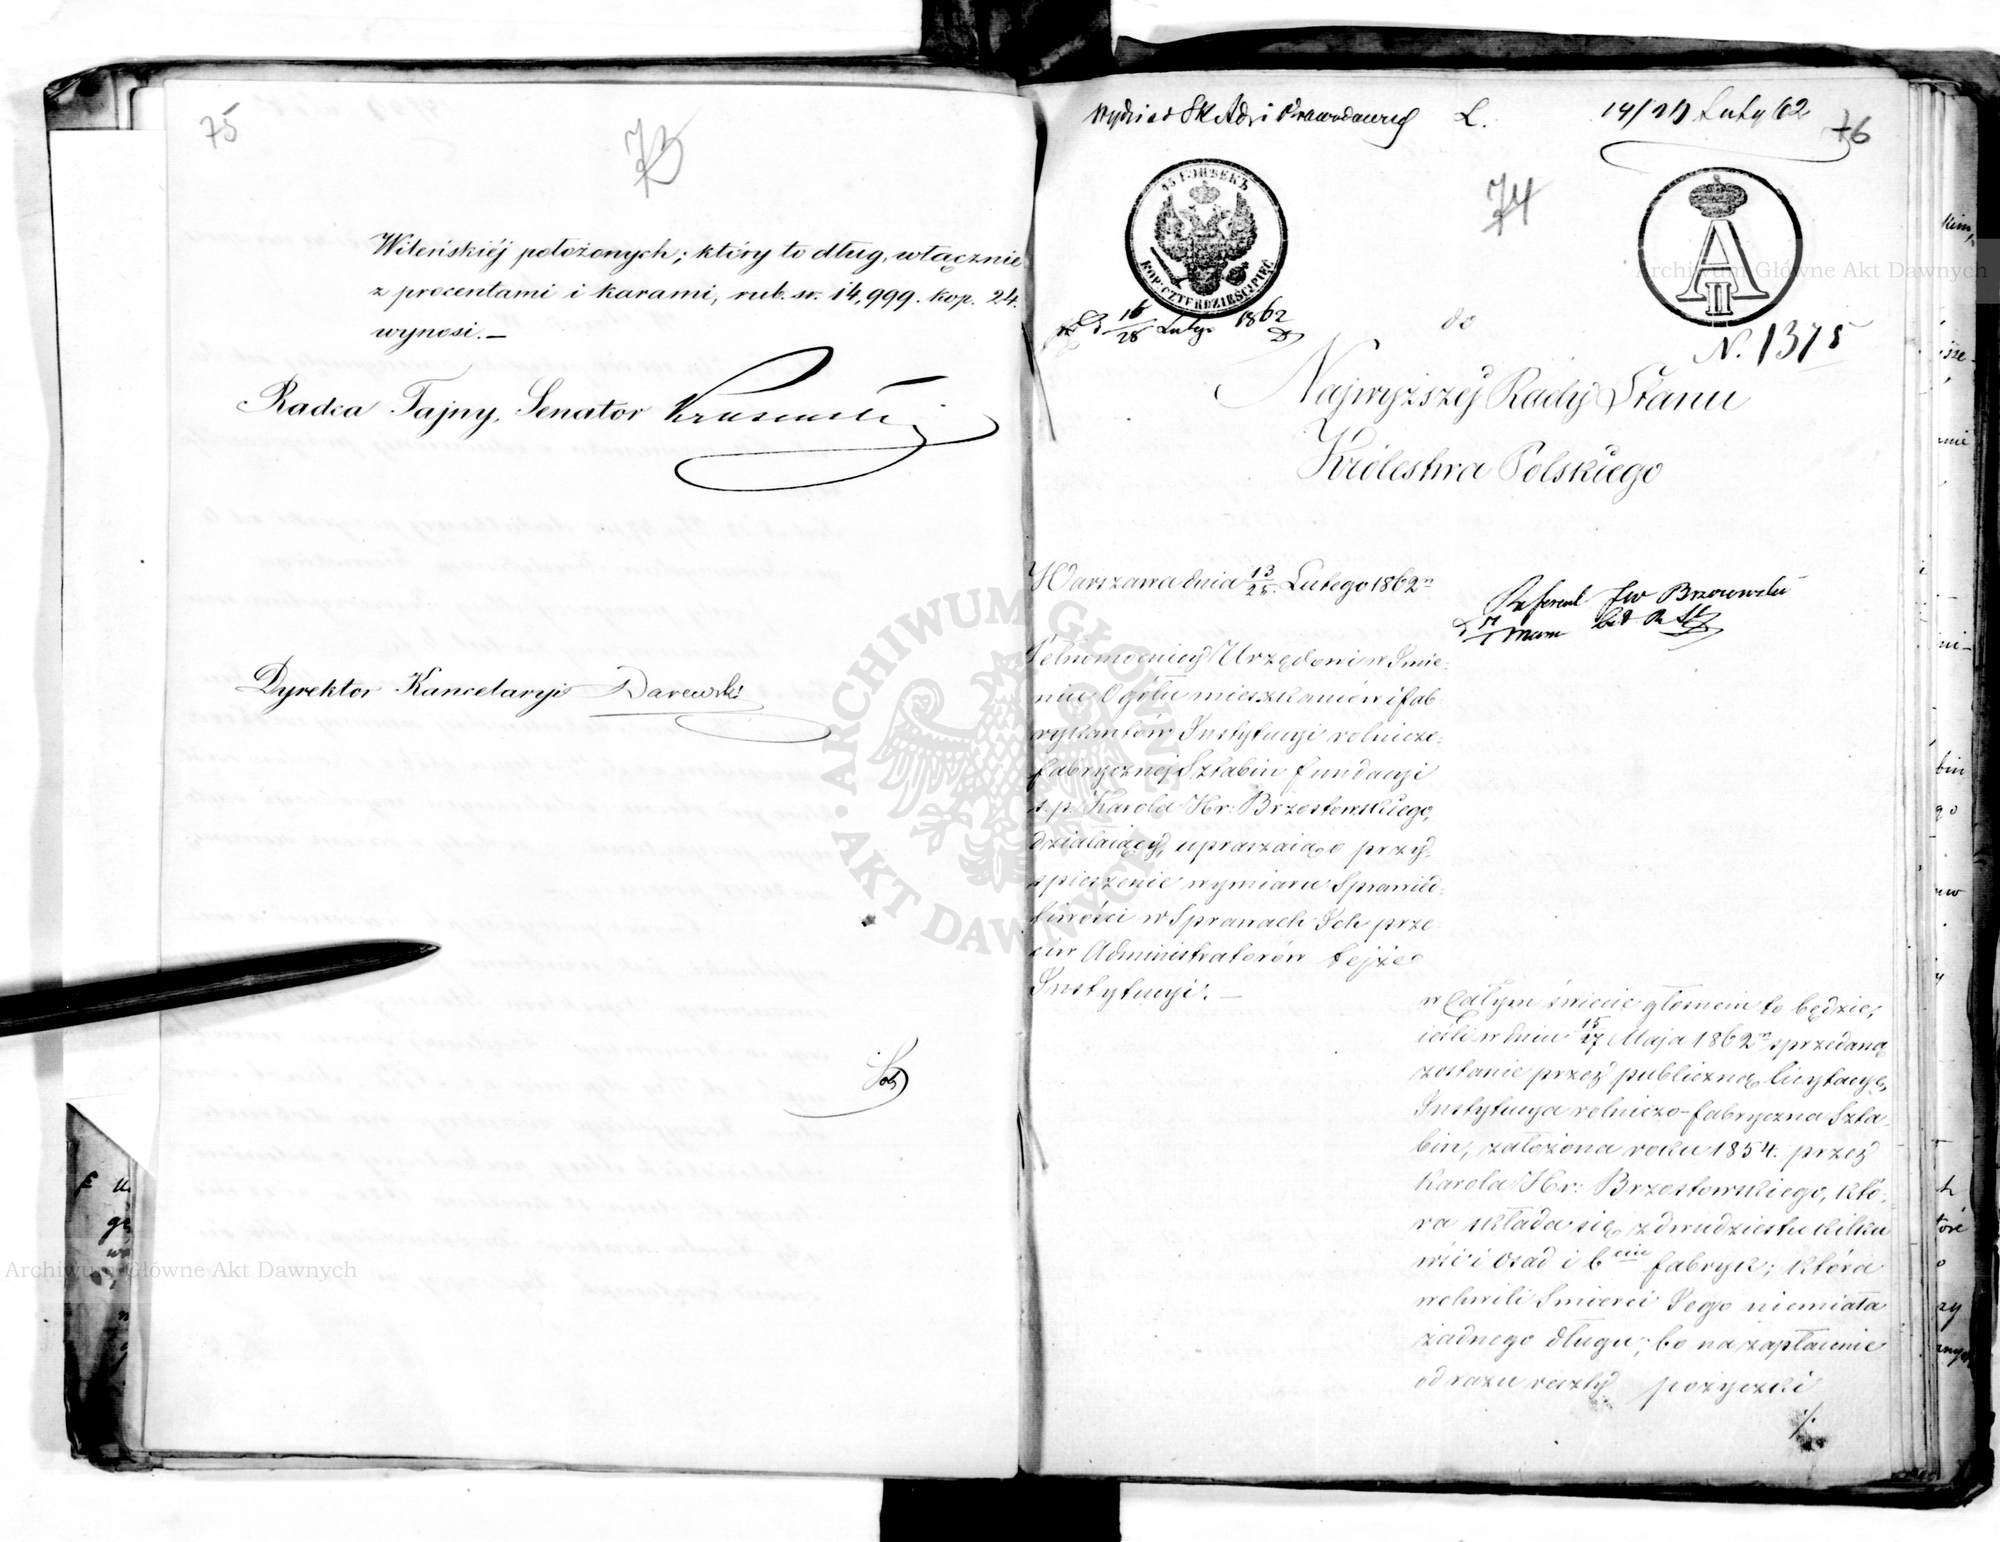 75
73
Wileńskiéj położonych; który to dług, włącznie
z procentami i karami, rub. sr. 14,999. kop. 24.
wynosi.—
Radca Tajny, Senator
Dyrektor Kancelaryi Darewski
L. 14/26 Luty 62
76
74
45 КОПѢЕКЪ
KOP: CZTERDZIEŚCI PIĘĆ
A II
16/28 Luty 1862
N. 1375
do
Najwyższéj Rady Stanu
Królestwa Polskiego
Warszawa dnia 13/25. Lutego 1862 r.
Referent JW Brzozowski
Pełnomocnicy Urzędowi w Imie-
niu Ogółu mieszkańców i fab-
rykantów Instytucyi rolniczo-
fabrycznej Sztabin fundacyi
ś.p. Karola Hr: Brzostowskiego,
działaiący, upraszaią o przy-
spieszenie wymiaru Sprawied-
liwości w Sprawach Ich prze-
ciw Administratorów tejże
Instytucyi.—
w Całym świecie głośnem to będzie,
ieśli w dniu 15/27 Maja 1862 r. sprzedaną
zostanie przez publiczną licytacyę,
Instytucya rolniczo-fabryczna Szta-
bin, założona roku 1854. przez
Karola Hr: Brzostowskiego, któ-
ra składa się z dwudziestu kilku
wsi i osad i 6ciu fabryk; która
w chwili Śmierci Jego niemiała
żadnego długu; bo na zapłacenie
od razu reszty pożyczki
./.
ARCHIWUM GŁÓWNE AKT DAWNYCH
Archiwum Główne Akt Dawnych
Archiwum Główne Akt Dawnych